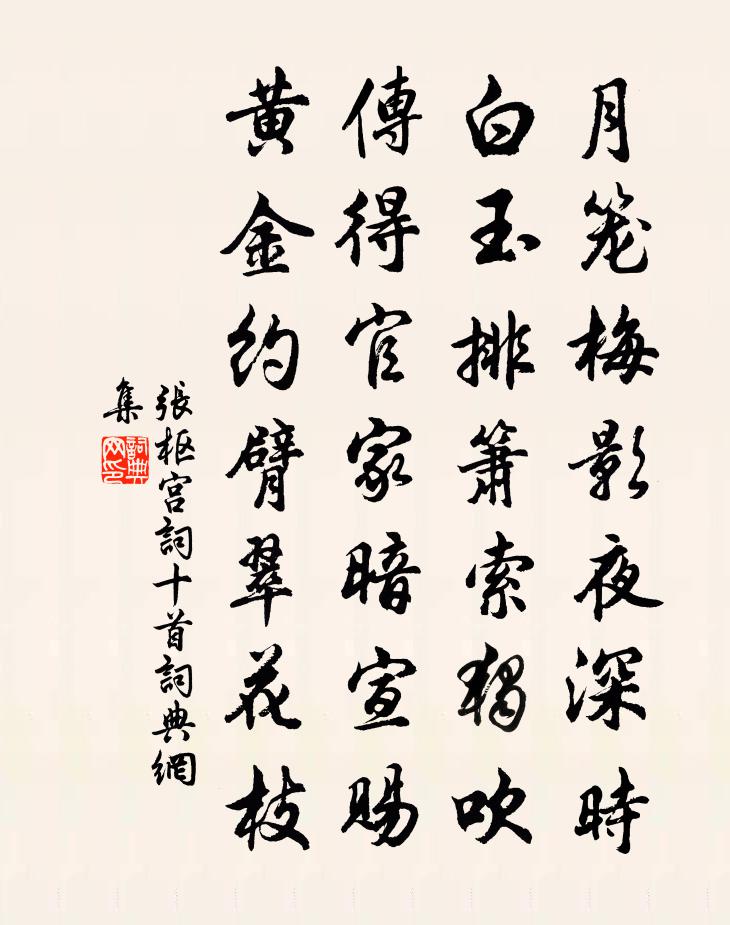 月笼梅影夜深時
白玉排箫索獨吹
傳得官家暗宣賜
黄金約臂翠花枝
張枢宫詞十首詞典網
集
詞典
网印